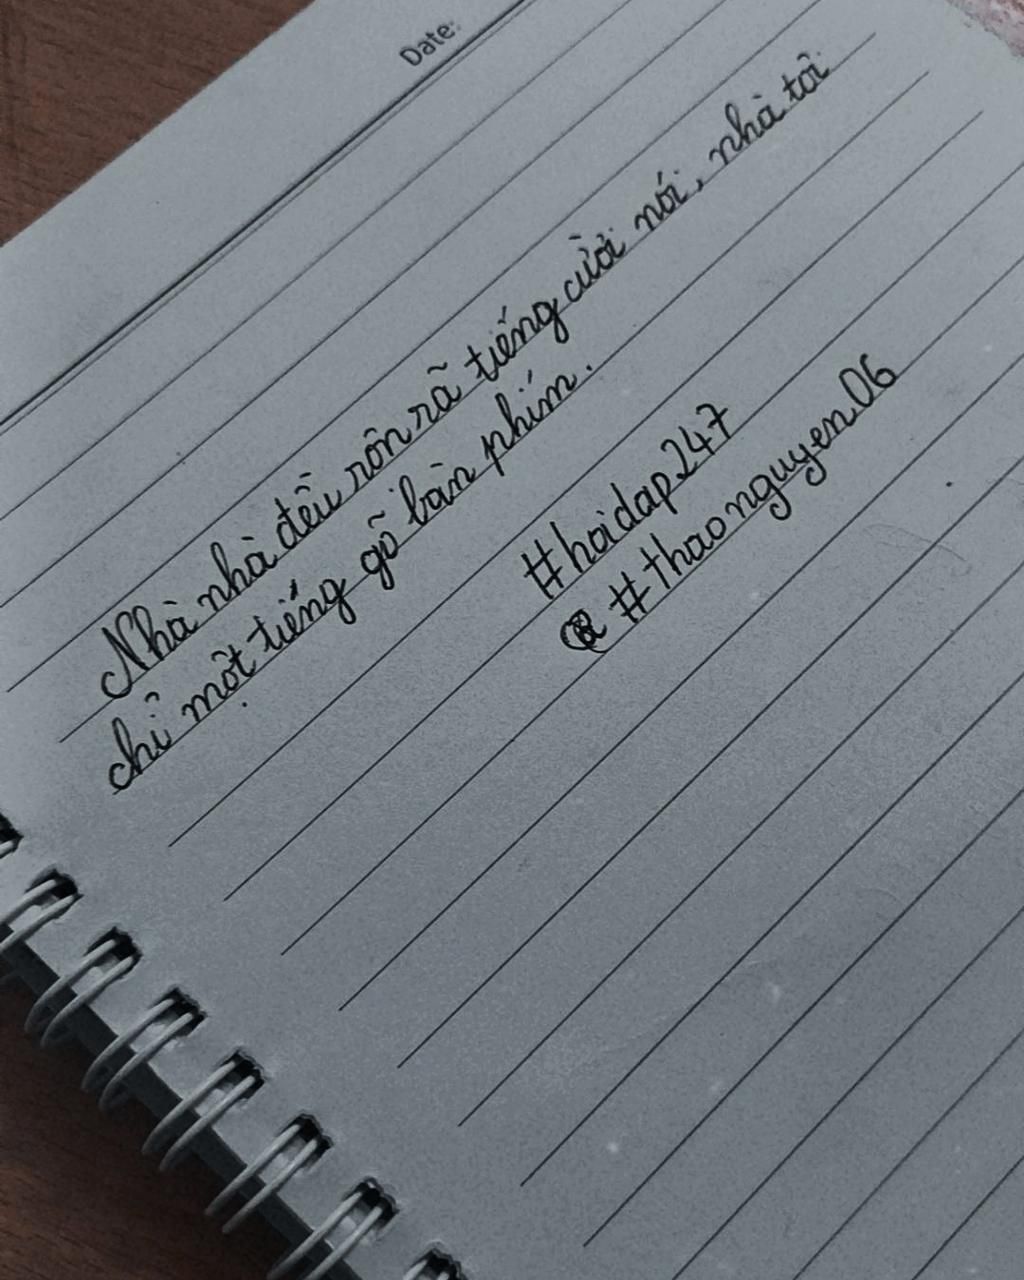 Date:
Nhà nhà đều rôn rã tiếng cười nói, nhà tôi
chỉ một tiếng gõ bàn phím.
#hoidap247
#thaonguyen06